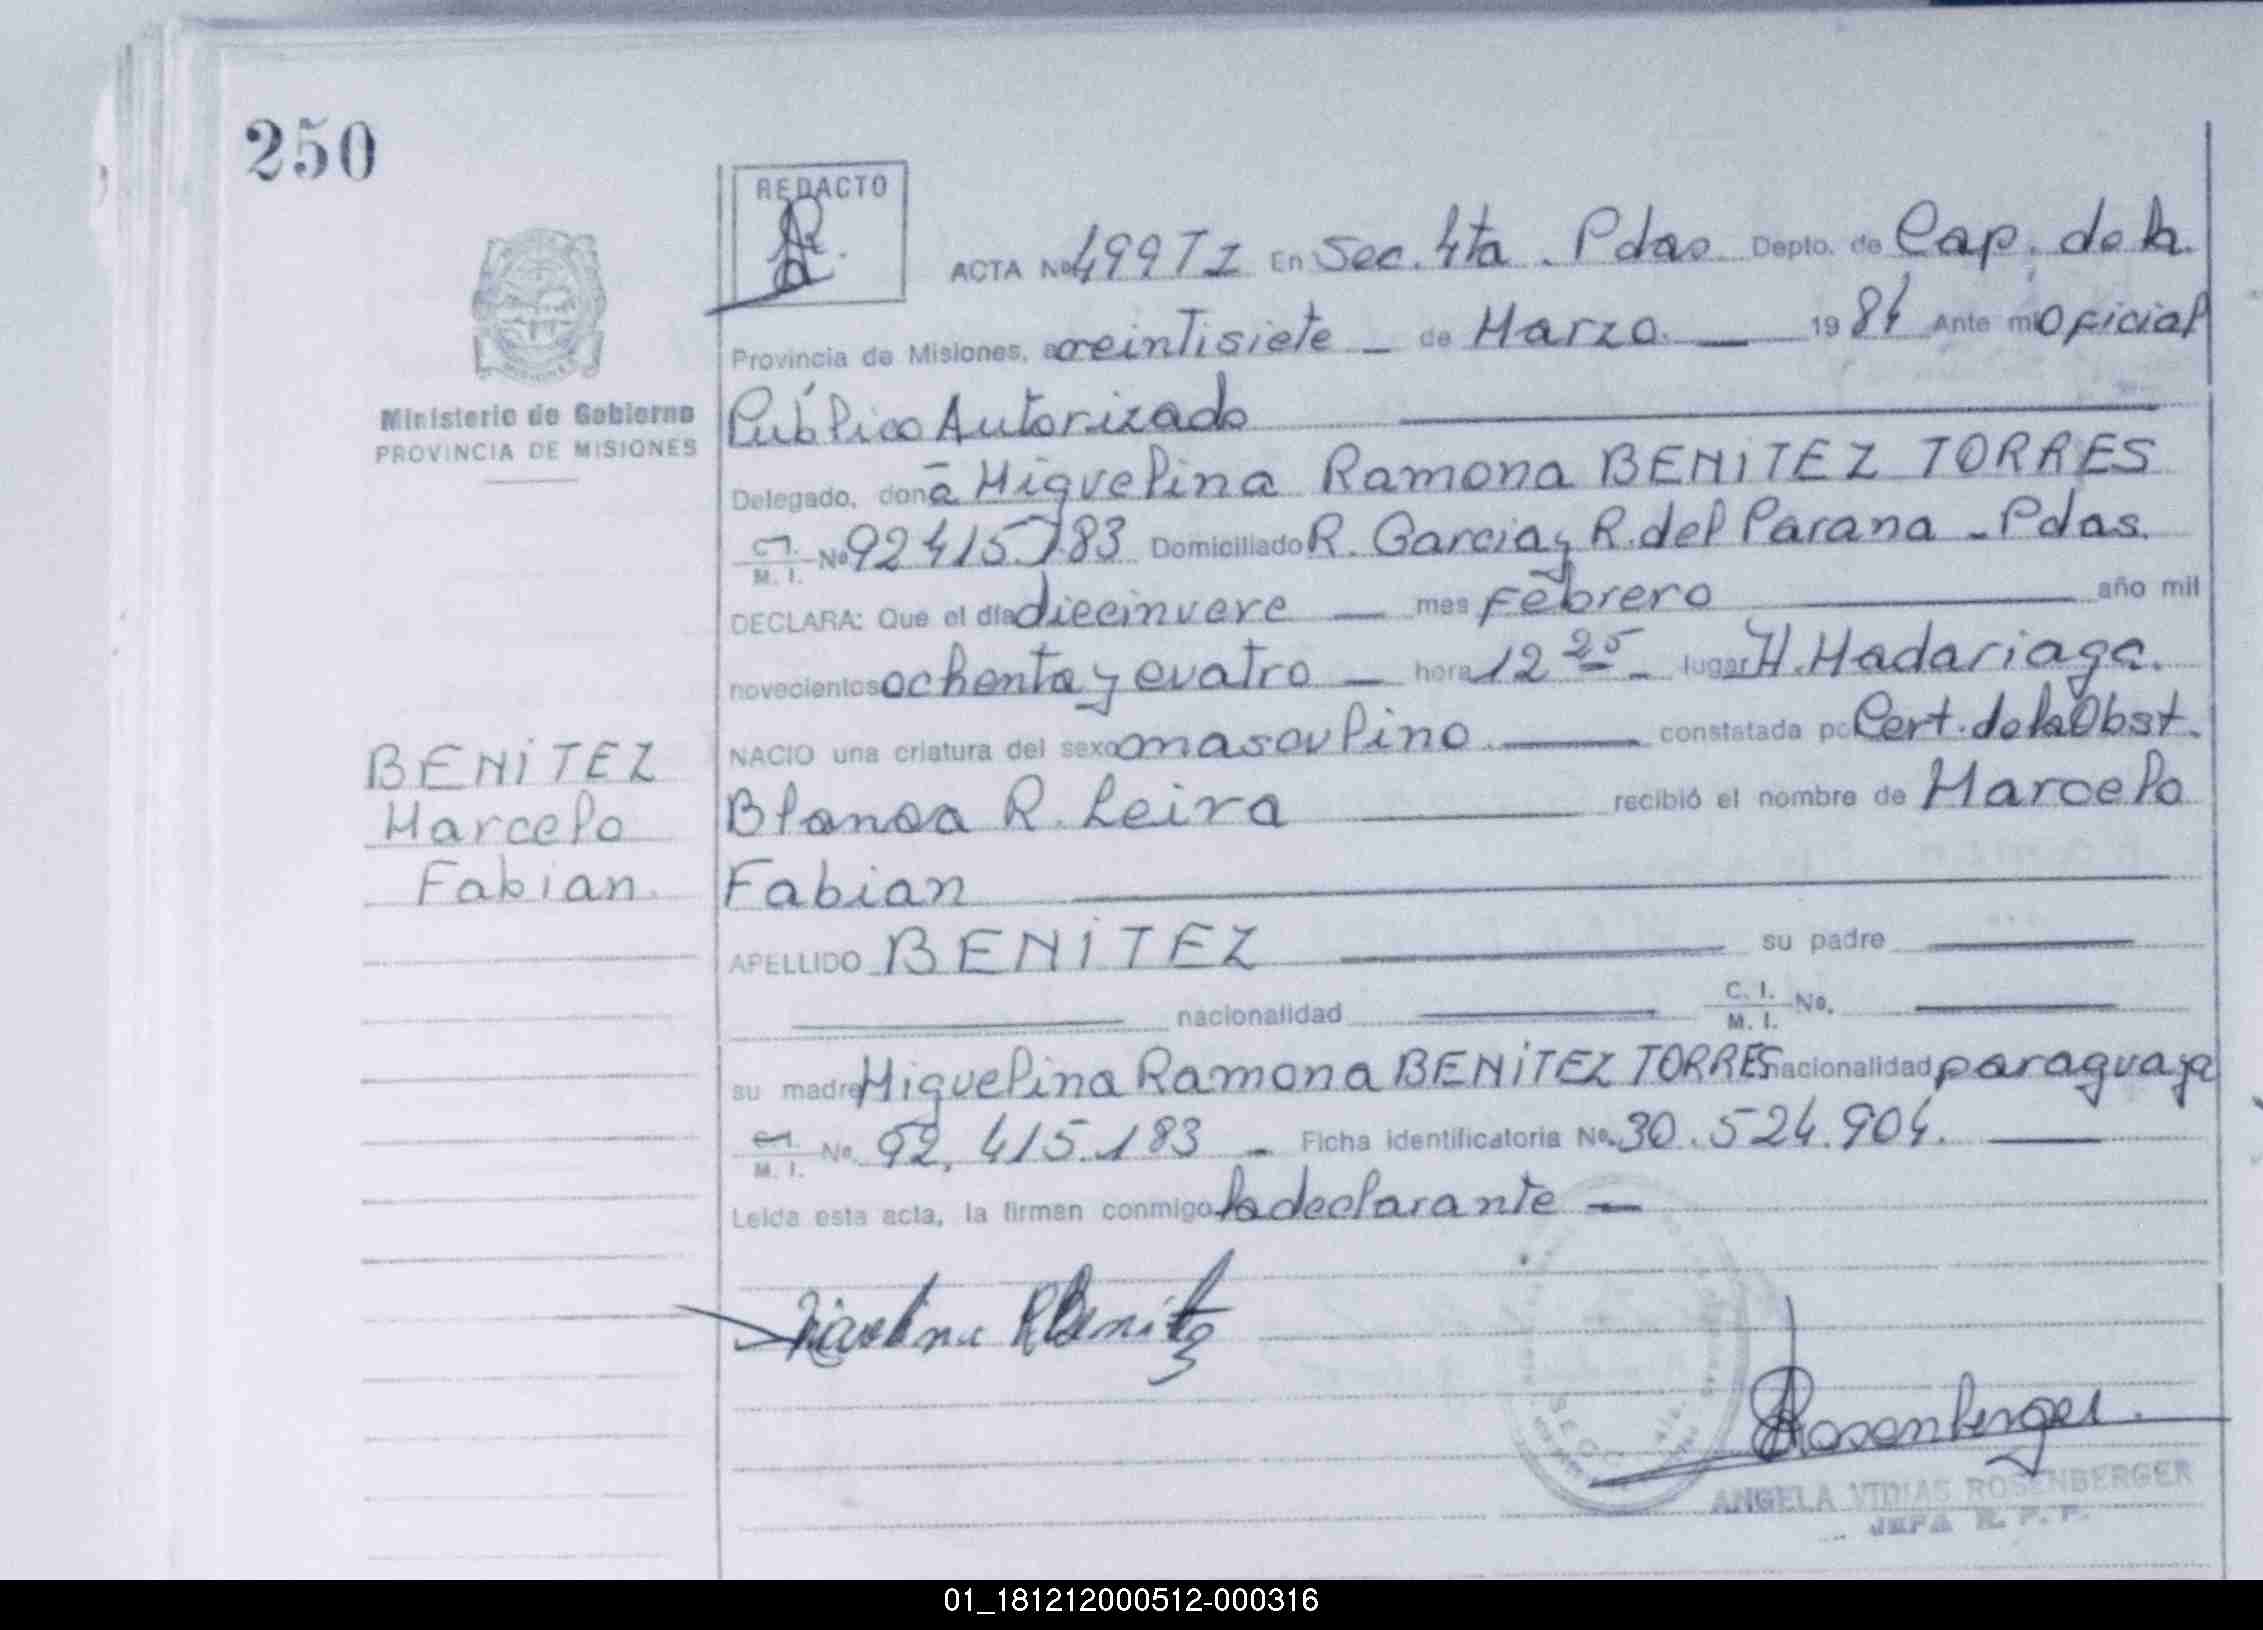 250
REDACTO
ACTA Nº 499 T I En Sec. 4ta. Pdas. Depto. de Cap. de la
Provincia de Misiones, a veintisiete - de Marzo. — 1984 Ante mi Oficial
Ministerio de Gobierno
PROVINCIA DE MISIONES
Público Autorizado
Delegado, doña Miguelina Ramona BENITEZ TORRES
C.I. M. I. Nº 92415183 Domiciliado R. Garcia y R. del Parana - Pdas.
DECLARA: Que el día diecinueve — mes Febrero — año mil
novecientos ochenta y cuatro — hora 12 25 - lugar H. Madariaga.
NACIO una criatura del sexo masculino — constatada po Cert. de la Obst.
Blanca R. Leira — recibió el nombre de Marcelo
Fabian
APELLIDO BENITEZ — su padre —
— nacionalidad — C. I. M. I. No. —
su madre Miguelina Ramona BENITEZ TORRES nacionalidad paraguaya
C.I. M. I. No. 92.415.183 - Ficha identificatoria No. 30.524.904. —
Leída esta acta, la firman conmigo la declarante —
BENITEZ
Marcelo
Fabian.
R Benitez
Rosenberger
SECC. 4ta.
ANGELA VIDIAS ROSENBERGER
JEFA R. P. P.
01_181212000512-000316